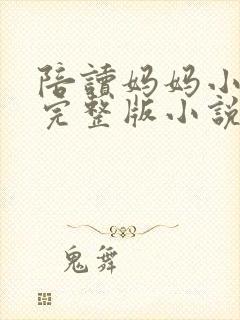 陪讀妈妈小
完整版小說
鬼舞